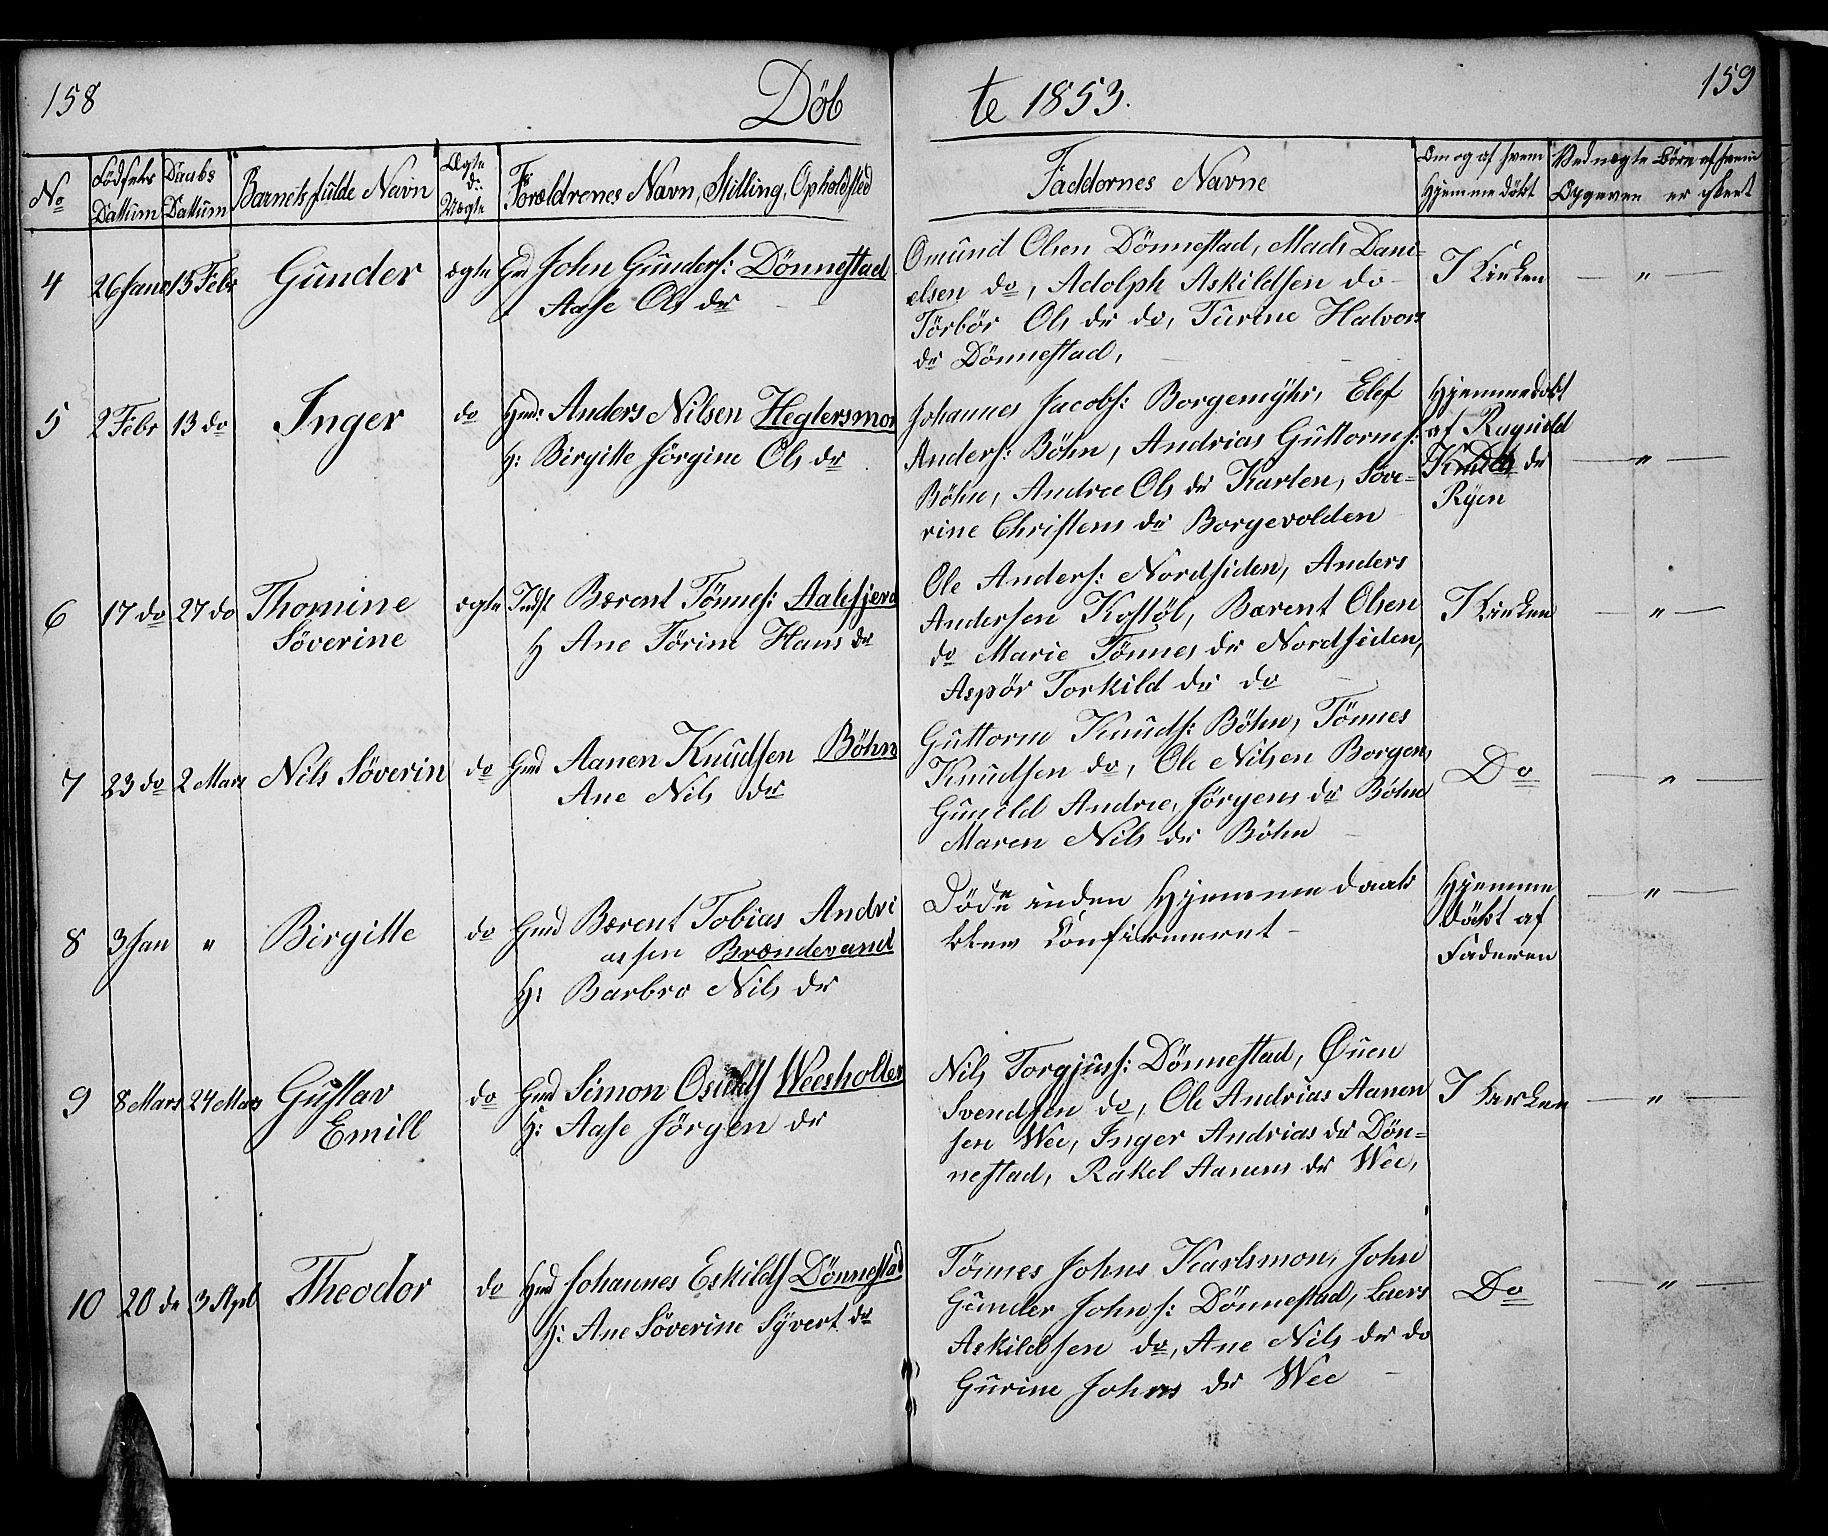 158
Döb
te 1853.
159
No
Födsels Dattum
Daabs Dattum
Barnets fulde Navn
Ægte d: Uægte
Forældrenes Navn, Stilling, Opholdsted
Faddernes Navne
Om og af hvem Hjemmedöbt
Ved uægte Börn af hvem Opgeven er skeet
4 26 Janr 15 Febr Gunder ægte Gmd John Gunders: Dönnestad
Aase Ols dr
Omund Olsen Dönnestad, Mads Dani-
elsen do, Adolph Askildsen do
Törbör Ols dr do, Turine Halvors
dr Dönnestad,
I Kirken
— " —
5 2 Febr 13 do Inger do Gmd: Anders Nilsen Heglersmon
H: Birgitte Jörgine Ols dr
Johannes Jacobs: Borgemyhr, Elef
Anders: Böhn, Andrias Guttorms:
Böhn, Andrea Ols dr Karlen, Söve-
rine Christens dr Borgevolden
Hjemmedöbt
af Ragnild
dr
Ryen
— " —
6 17 do 27 do Thomine
Söverine
ægte Indst Bærent Tönnes: Aalefjera
H Ane Törine Hans dr
Ole Anders: Nordsiden, Anders
Andersen Kostöl, Bærent Olsen
do Marie Tönnes dr Nordsiden,
Aspör Torkild dr do
I Kirken
— " —
7 23 do 2 Mars Nils Söverin do Gmd Aanen Knudsen Böhn
Ane Nils dr
Guttorm Knuds: Böhn, Tönnes
Knudsen do, Ole Nilsen Borgen,
Gunild Andrea, Jörgens dr Böhn
Maren Nils dr Böhn
Do
— " —
8 3 Jan " Birgitte do Gmd Bærent Tobias Andri
assen Brændevand
H: Barbro Nils dr
Döde inden Hjemmedaab
blev Confirmeret
Hjemme
döbt af
Faderen
— " —
9 8 Mars 24 Mars Gustav
Emill
do Gmd Simon Osulds Weesholter
H: Aase Jörgen dr
Nils Torgjus: Dönnestad, Øuen
Svendsen do, Ole Andrias Aanen
sen Wee, Inger Andrias dr Dön=
nestad, Rakel Aanens dr Wee,
I Kirken
— " —
10 20 do 3 Apl Theodor do Gmd Johannes Eskilds Dönnestad
H: Ane Söverine Syvert dr
Tönnes Johns Karlsmon, John
Gunder Johns: Dönnestad, Laers
Askildsen do, Ane Nils dr do
Gurine Johns dr Wee
Do
— " —